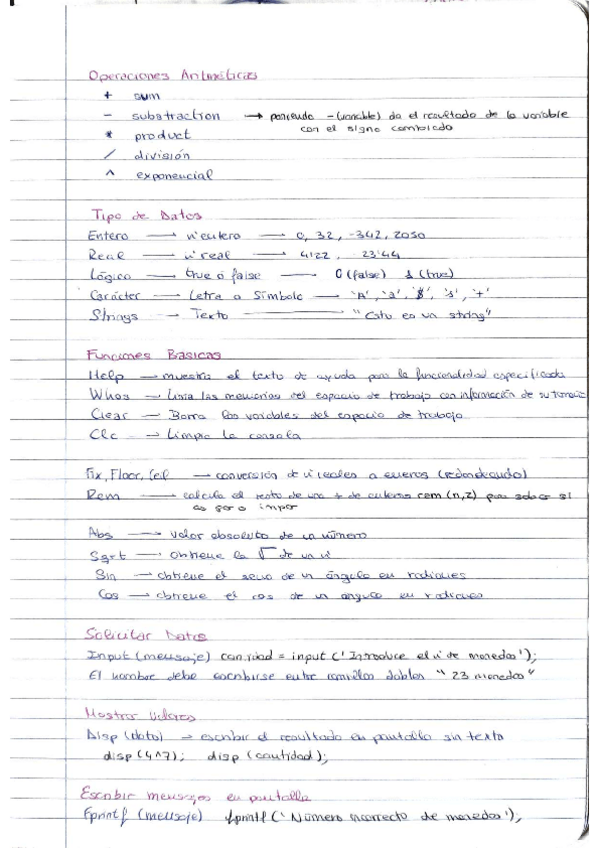 Operaciones Aritméticas
+ sum
- substraction → poniendo -(variable) da el resultado de la variable
con el signo cambiado
* product
/ división
^ exponencial
Tipo de Datos
Entero → nº entero → 0, 32, -342, 2050
Real → nº real → 4'122, -23'44
Lógico → true o false → 0 (false) 1 (true)
Carácter → Letra o Símbolo → 'A', 'a', '$', '3', '+'
Strings → Texto → "Esto es un string"
Funciones Básicas
Help → muestra el texto de ayuda para la funcionalidad especificada
Whos → Lista las memorias del espacio de trabajo con información de su tamaño
Clear → Borra las variables del espacio de trabajo
Clc → Limpia la consola
Fix, Floor, Ceil → conversión de nº reales a enteros (redondeando)
Rem → calcula el resto de una ÷ de enteros rem (n,2) para saber si
es par o impar
Abs → valor absoluto de un número
Sqrt → obtiene la √ de un nº
Sin → obtiene el seno de un ángulo en radianes
Cos → obtiene el cos de un ángulo en radianes
Solicitar Datos
Input (mensaje) cantidad = input ('Introduce el nº de monedas');
El nombre debe escribirse entre comillas dobles "23 monedas"
Mostrar Valores
Disp (dato) → escribir el resultado en pantalla sin texto
disp (4^7); disp (cantidad);
Escribir mensajes en pantalla
Fprintf (mensaje) fprintf ('Número incorrecto de monedas');